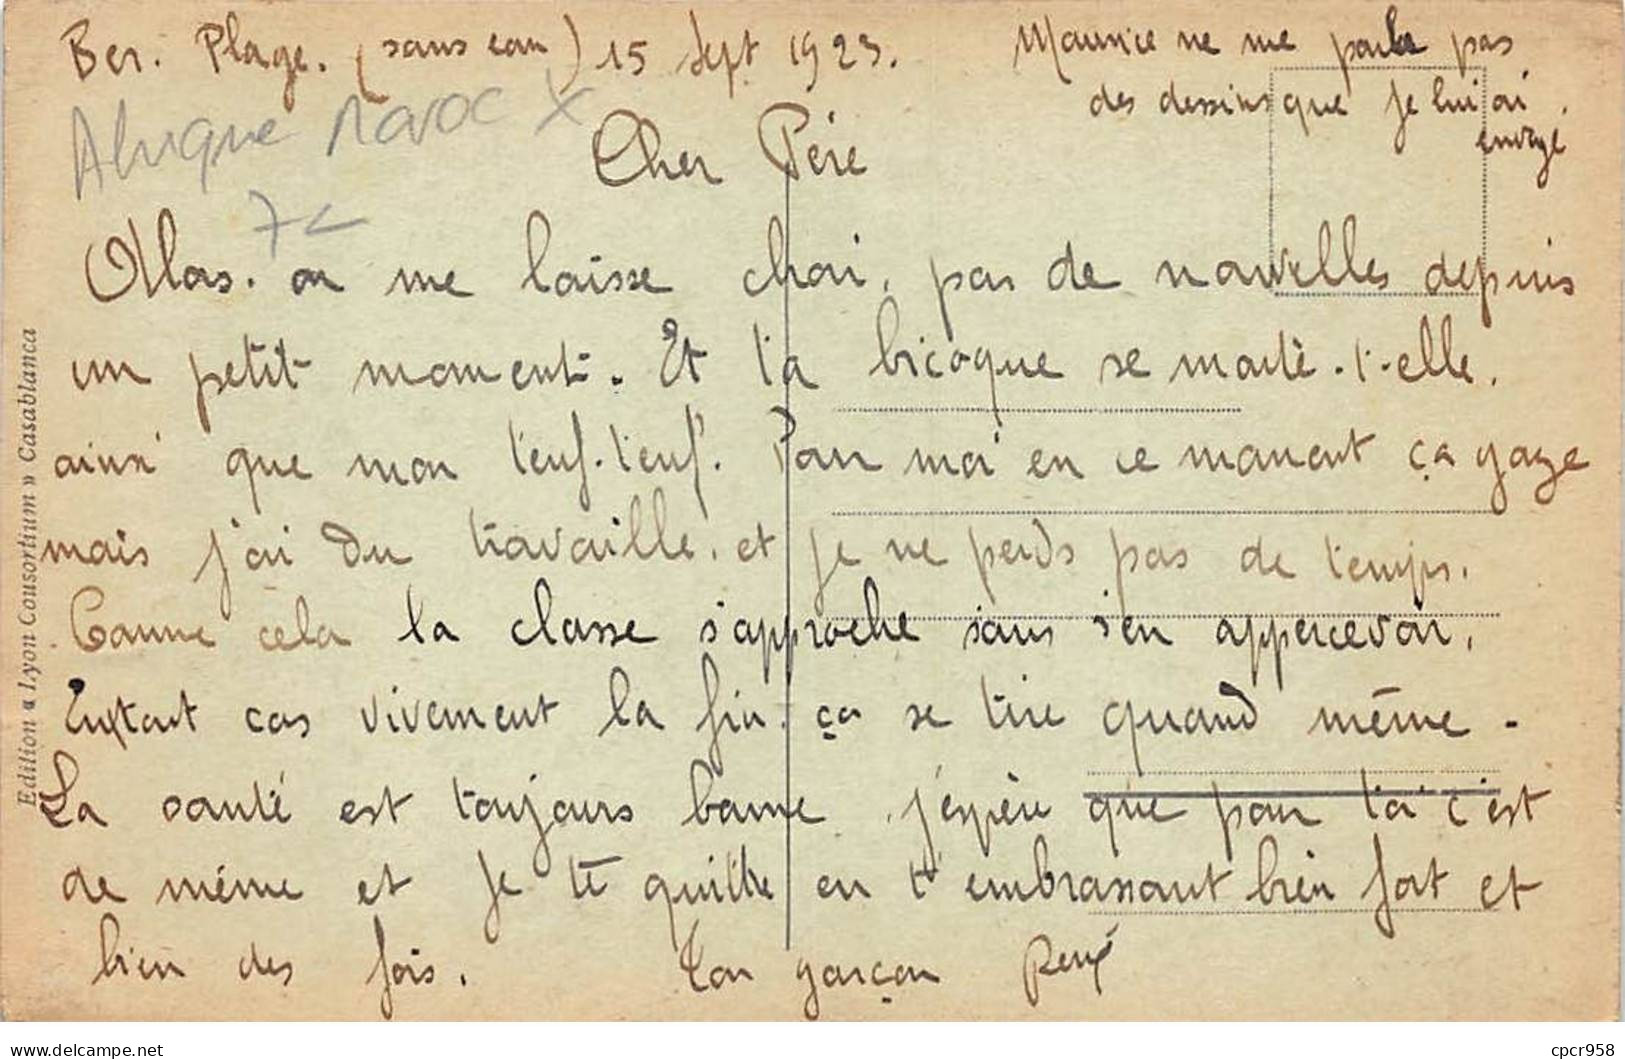 Ber. Plage. (sans eau) 15 Sept 1923.
Maurice ne me parle pas
des dessins que je lui ai
envoyé
Afrique Maroc X
Cher Père
Alors. on me laisse choi, pas de nouvelles depuis
un petit moment. Et ta bicoque se monte-t-elle.
ainsi que mon teuf-teuf. Pour moi en ce moment ça gaze
mais j'ai du travaille. et je ne perds pas de temps.
Comme cela la classe s'approche sans s'en appercevoir.
Entout cas vivement la fin. ça se tire quand même.
La santé est toujours bonne. j'espère que pour toi c'est
de même et je te quitte en t'embrassant bien fort et
bien des fois. Ton garçon René
Edition « Lyon Cousortium » Casablanca
delcampe.net
cpcr958